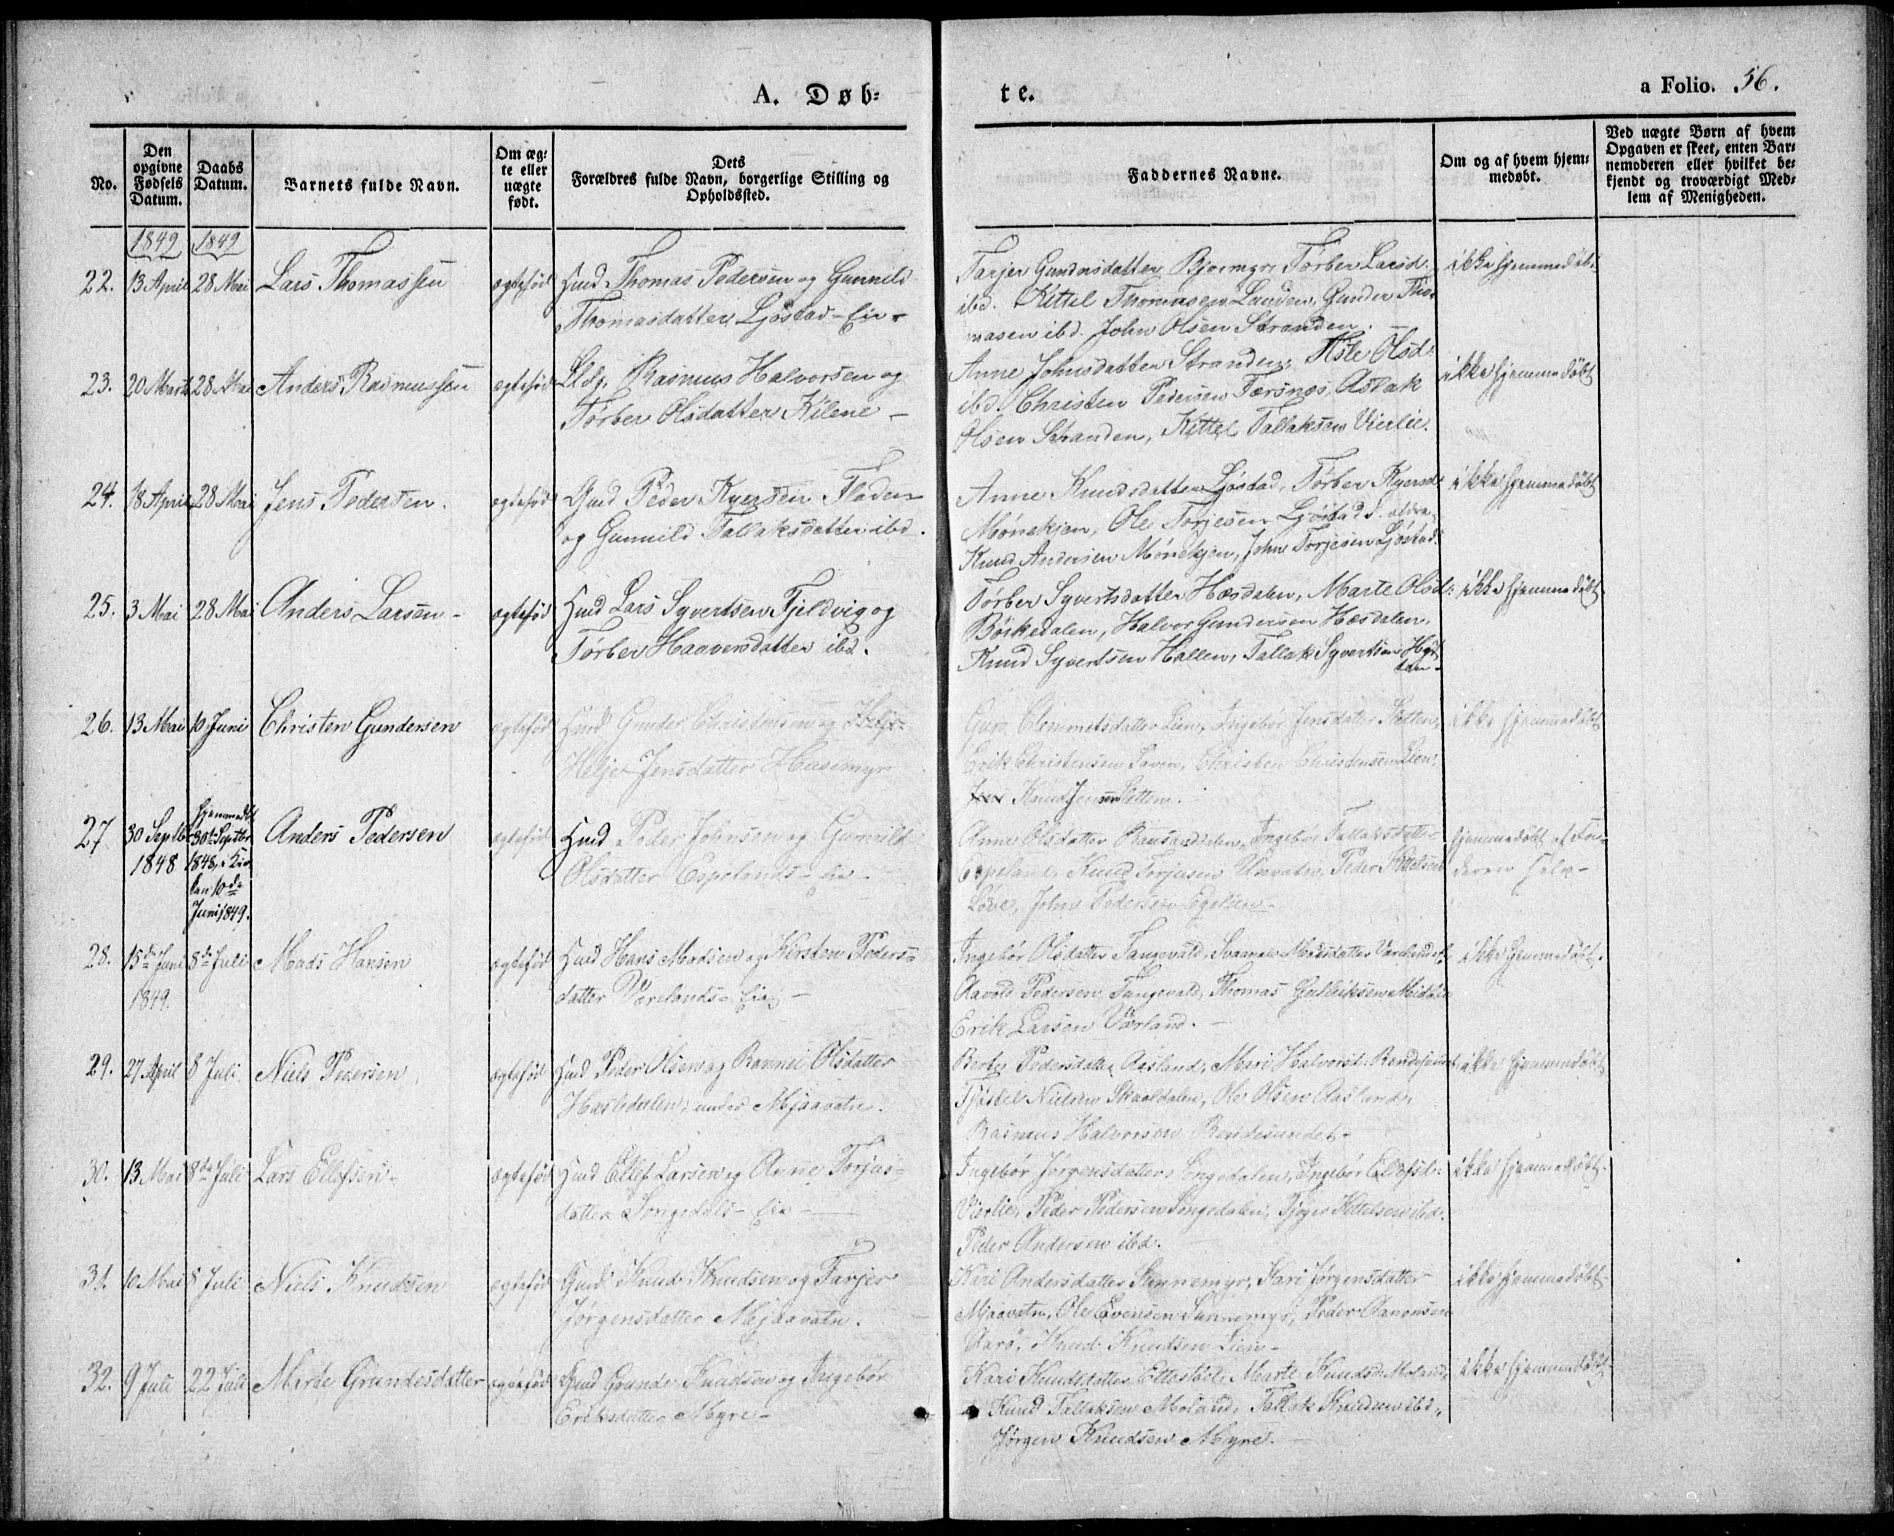 A. Døb-
te.
a Folio. 56.
No.
Den opgivne Fødsels Datum.
Daabs Datum.
Barnets fulde Navn.
Om æg-
te eller
uægte
født.
Dets
Forældres fulde Navn, borgerlige Stilling og
Opholdssted.
Faddernes Navne.
Om og af hvem hjem-
medøbt.
Ved uægte Børn af hvem
Opgaven er skeet, enten Bar-
nemoderen eller hvilket be-
kjendt og troværdigt Med-
lem af Menigheden.
1849 1849
22. 13 April 28 Mai Lars Thomassen ægtefød Huusm Thomas Pedersen og Gunnild
Thomasdatter Ljøstad-Eie-
Tarjer Gundersdatter Bjormyr, Tørber Larsd.
ibd. Kittel Thomasen Landen, Gunder Tho-
masen ibd. John Olsen Stranden.
ikke hjemmedøbt
23. 20 Marts 28 Mai Anders Rasmussen ægtefød Rasmus Halvorsen og
Tørber Olsdatter Kilene -
Anne Johnsdatter Stranden, Asle Olsd:
ibd. Christen Pedersen Færsnes, Aslak
Olsen Stranden, Kittel Tallaksen Vierlie.
ikke hjemmedøbt
24. 18 April 28 Mai Jens Pedersen. ægtefød Gmd Peder Kyersen Fladen-
og Gunnild Tallaksdatter ibd.
Anne Knudsdatter Ljøstad, Tørber Kyersd:
Mønekjen, Ole Torjesen Ljøstad
Knud Andersen Mønekjen, John Torjesen Ljøstad.
ikke hjemmedøbt
25. 3 Mai 28 Mai Anders Larsen - ægtefød Hmd Lars Syvertsen Fjeldvig og
Tørber Haavorsdatter ibd.
Tørber Syvertsdatter Hæsdalen, Marte Olsd:
Bøikedalen, Halvor Gundersen Hæsdalen,
Knud Syvertsen Hallen, Tallak Syvertsen
ikke hjemmedøbt
26. 13 Mai 10 Juni Christen Gundersen ægtefød Hmd Gunder Christensen og
Helje Jensdatter Husemyr
Clemmetsdatter Lien, Ingebør Jensdatter Sletten,
Erik Christensen Christen Christensen Lien,
Knud Jensen Sletten.
ikke hjemmedøbt
27. 30 Septbr 1848 hjemmedt 30te Septbr 1848, i Kirken 10de Juni 1849. Anders Pedersen ægtefød Hmd Peder Johnsen og Gunnild
Olsdatter Espelands-Eie-
Anne Olsdatter Ingebør Tallaksdatter
Espeland, Knud Torjusen Peder Kittelsen
Løve, John Pedersen Egelien-
hjemmedøbt af Fa-
deren selv-
28. 15de Juni 1849. 8de Juli Mads Hansen ægtefød Hmd Hans Madsen og Kirsten Peders-
datter Værelands-Eie -
Ingebør Olsdatter Tangevald, Madsdatter
Aavold Pedersen Tangevald, Thomas
Erik Larsen Værland.-
ikke hjemmedøbt.
29. 27 April 8 Juli. Niels Pedersen ægtefød Hmd Peder Olsen og Ravnei Olsdatter
Hæsledalen, under Mjaavatn.
Berte Pedersdatter Aasland, Mari Halvorsd: Rendesundet,
Tjøstel Nielsen Skaaldalen, Ole Olsen Aasland,
Rasmus Halvorsen Rendesundet-
ikke hjemmedøbt
30. 13 Mai 8de Juli Lars Ellefsen- ægtefød Hmd Ellef Larsen og Anne Torjus-
datter Songedals-Eie-
Ingebør Jørgensdatter Songedalen, Ingebør Ellefsd:
Vierlie, Peder Pedersen Songedalen, Kittelsen ibd.
Peder Andersen ibd.
ikke hjemmedøbt-
31. 10 Mai 8 Juli Niels Knudsen ægtefød Gmd Knud Knudsen og Tarjer
Jørgensdatter Mjaavatn.
Kari Andersdatter Sunnemyr, Kari Jørgensdatter
Mjaavatn, Ole Evensen Sunnemyr, Peder Aanonsen
Knud Knudsen Lien-
ikke hjemmedøbt-
32. 9 Juli 22 Juli Marte Gundersdatter ægtefød Gmd Gunder Knudsen og Ingebør
Eriksdatter Myre-
Kari Knudsdatter Marte Knudsd: Moland,
Knud Tallaksen Moland, Tallak Knudsen ibd.,
Jørgen Knudsen Myre.
ikke hjemmedøbt